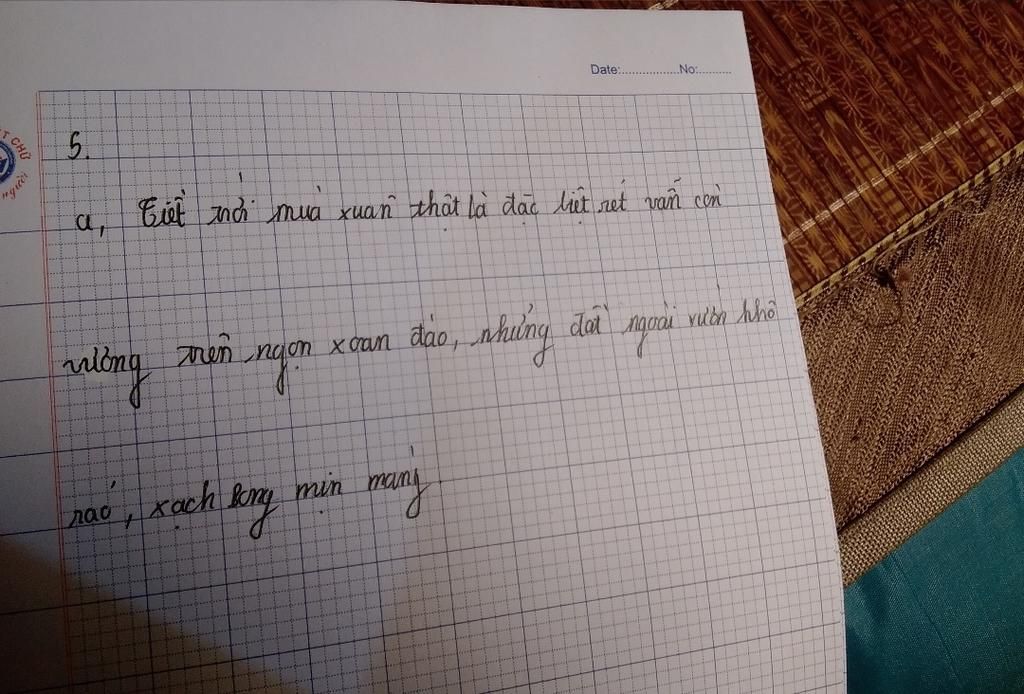 Date:................No:..........
T CHỮ
NGƯỜI
5.
a, Tiết trời mùa xuân thật là đặc biệt rét vẫn còn
vương trên ngọn xoan đào, nhưng đất ngoài vườn khô
ráo, xạch bong mịn màng